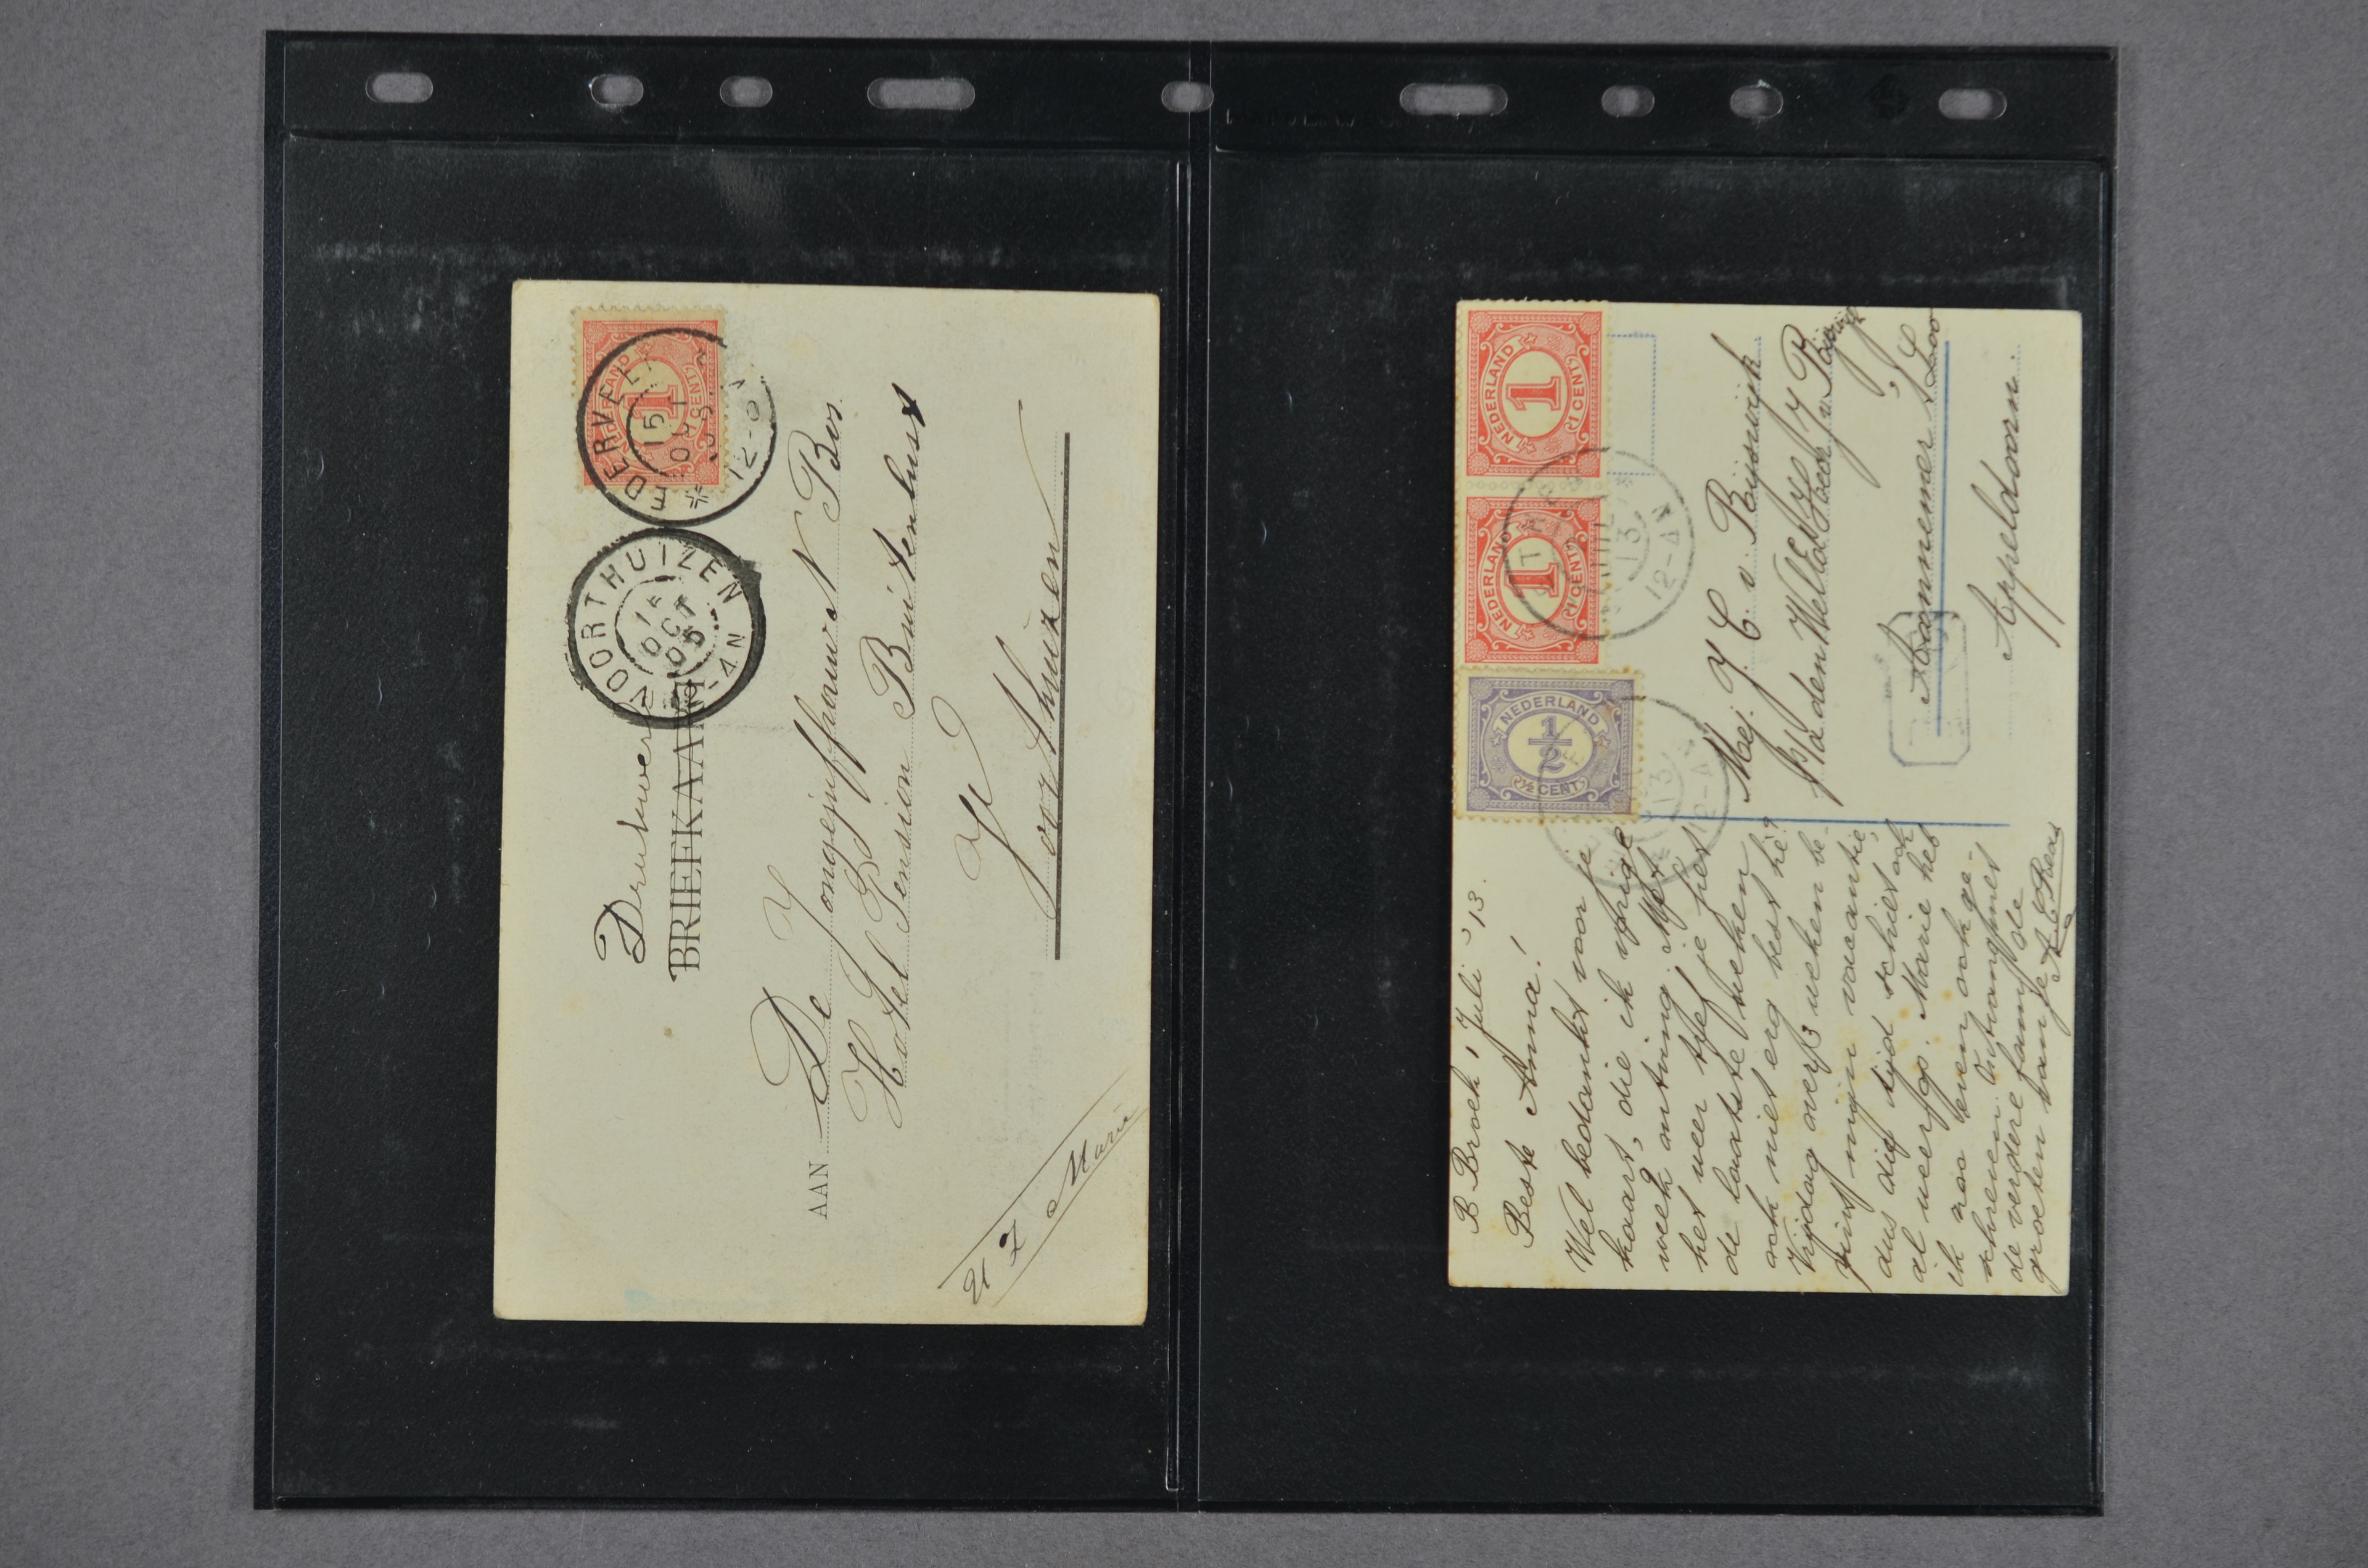 NEDERLAND
1
1 CENT
EDERVEEN
15
OCT
05
12-
VOORTHUIZEN
15
OCT
05
Drukwerk
BRIEFKAART
AAN De Jongejuffrouw N Bos
Hotel Pension Buitenlust
Te
Voorthuizen
U Z Marie
NEDERLAND
1
1 CENT
NEDERLAND
1
1 CENT
NEDERLAND
1/2
1/2 CENT
13
12-
13
12-
B Broek 1 Juli '13.
Beste Anna!
Wel bedankt voor je
kaart, die ik vorige
week ontving. Met
het weer tref je het
de laatste weken
ook niet erg best hè?
Vrijdag over 3 weken be-
gint mijn vacantie,
dus die tijd schiet ook
al weer op. Marie heb
ik zoo even ook ge-
schreven.
de verdere fam. de
groeten van je
Mej. J. C. v. Rijswijk
p/a den WelEd Heer J. v. Rijswijk
Loo
Appeldoorn.